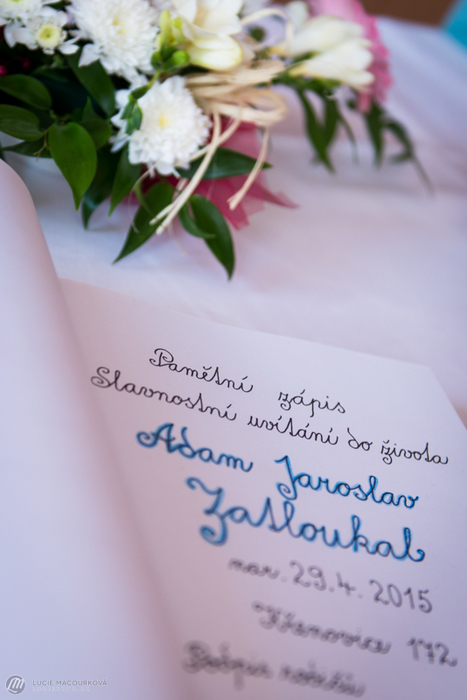 Pamětní zápis
Slavnostní uvítání do života
Adam Jaroslav
Zatloukal
nar. 29.4. 2015
172
Podpis rodičů
LUCIE MACOURKOVÁ